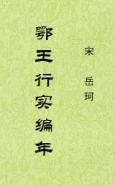 鄂王行实编年
宋 岳珂